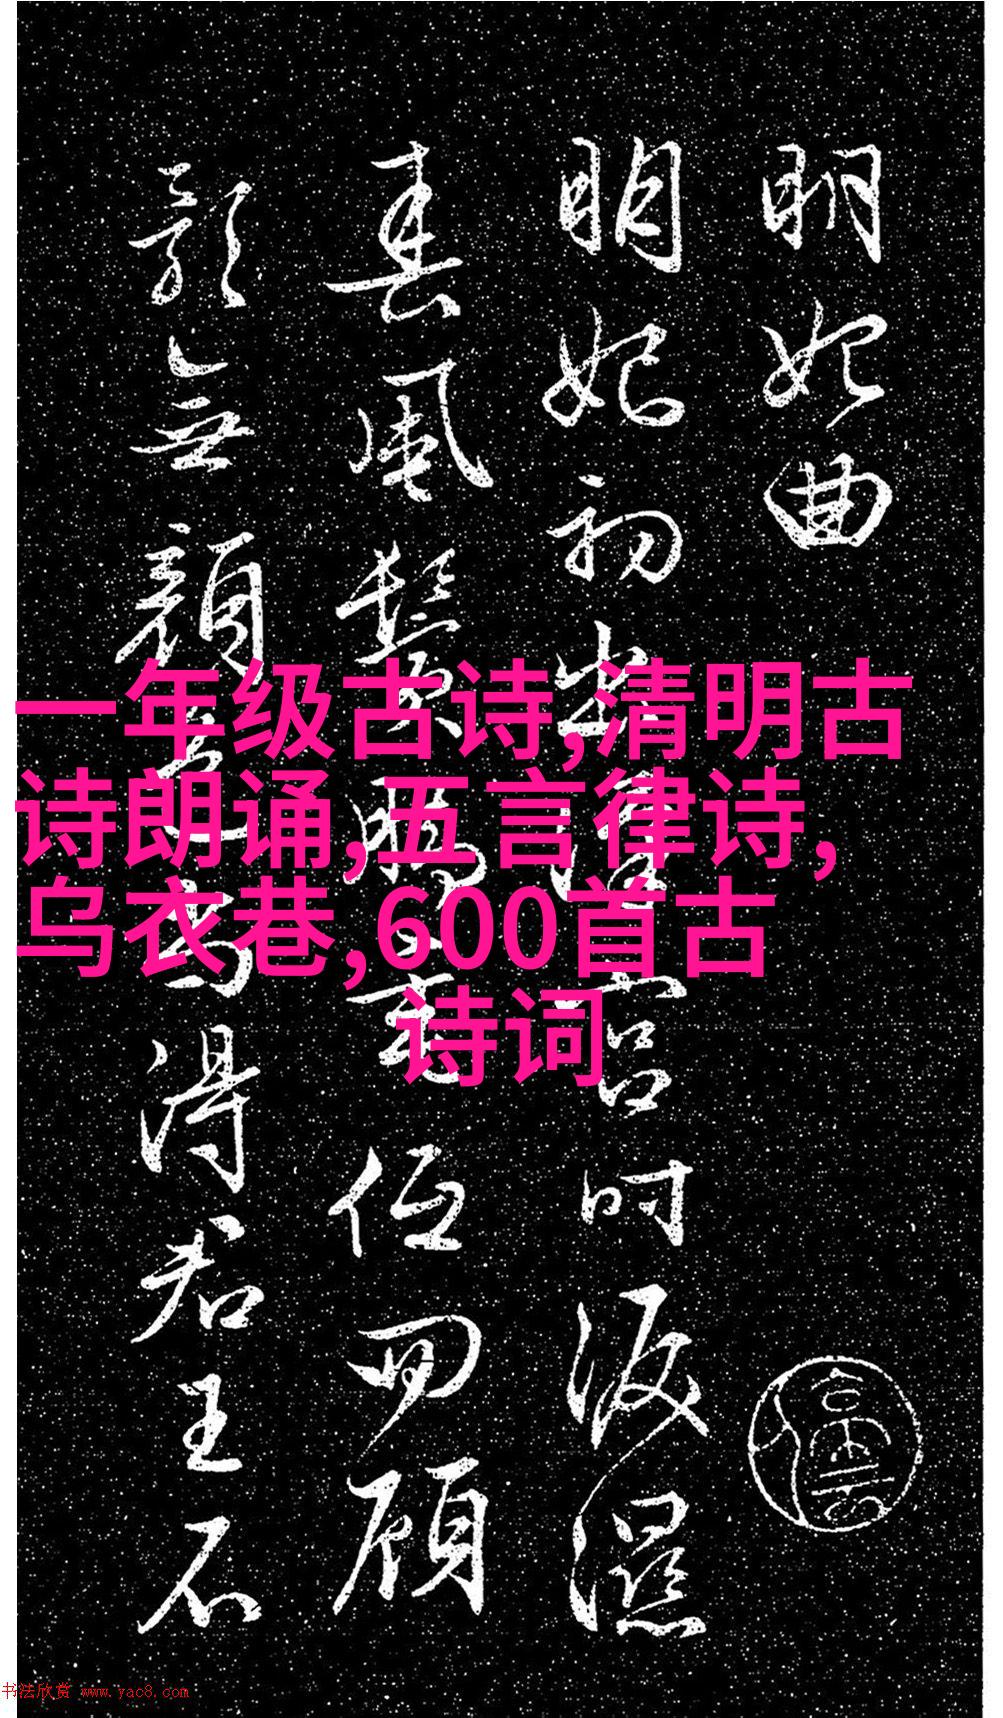 明妃曲
明妃初出漢宮時淚濕
春風鬢腳垂低回顧
影無顏色尚得君王不
一年级古诗,清明古
诗朗诵,五言律诗,
乌衣巷,600首古
诗词
书法欣赏 www.yac8.com